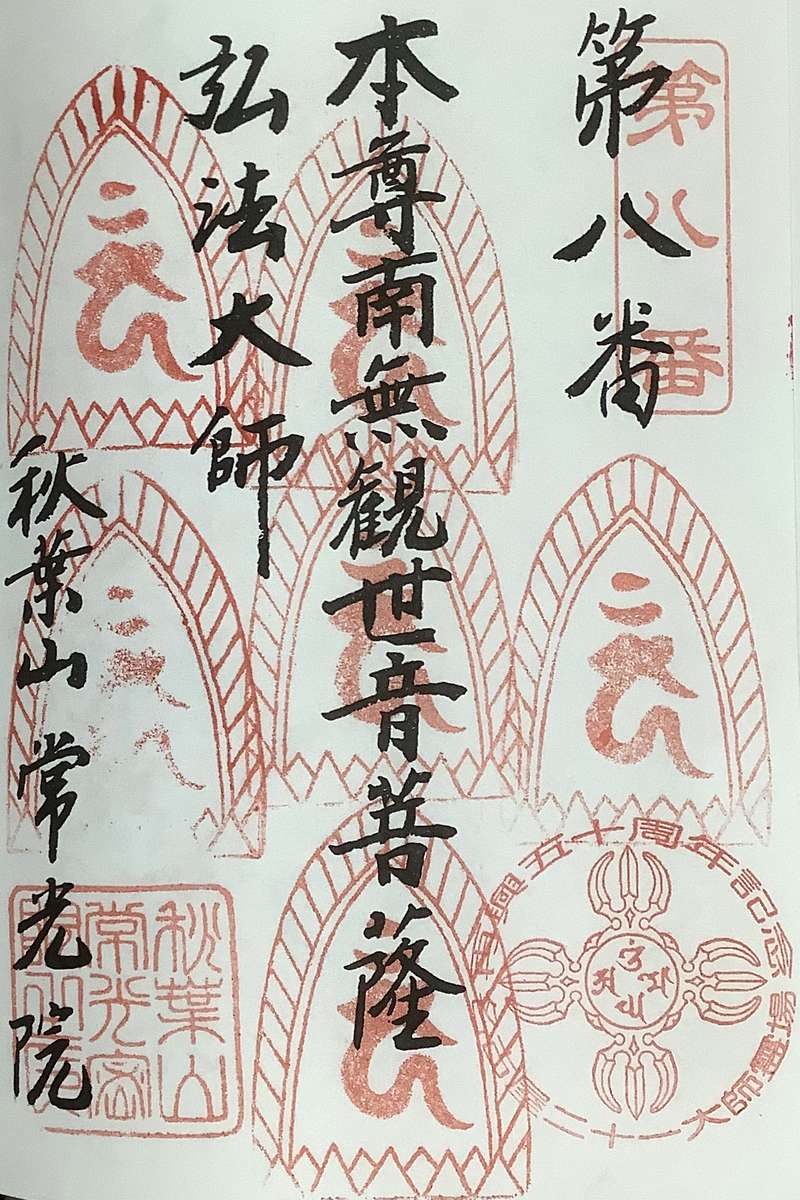 第八番
第八番
本尊南無観世音菩薩
弘法大師
秋葉山常光院
秋葉山
常光密
五十周年記念
二十一大師霊場